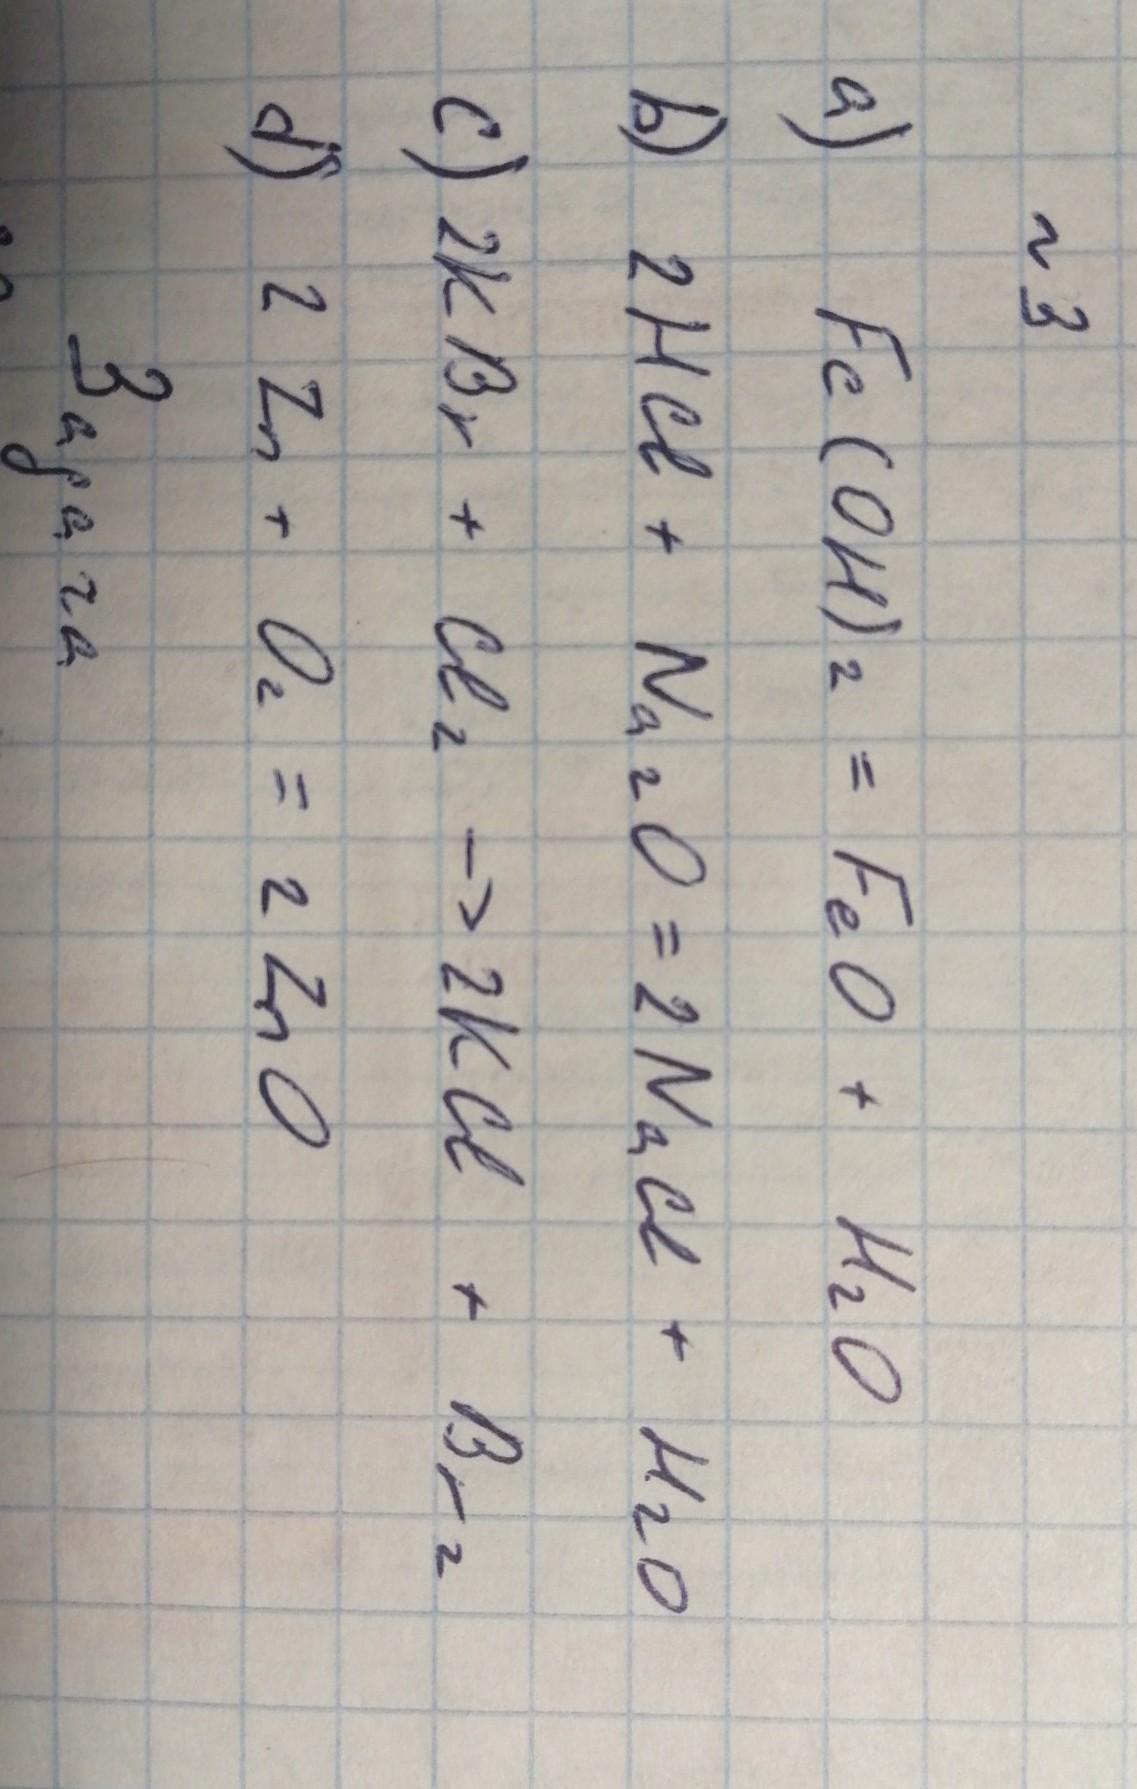 ~ 3
a) Fe(OH)₂ = FeO + H₂O
b) 2HCl + Na₂O = 2NaCl + H₂O
c) 2KBr + Cl₂ → 2KCl + Br₂
d) 2Zn + O₂ = 2ZnO
Задача